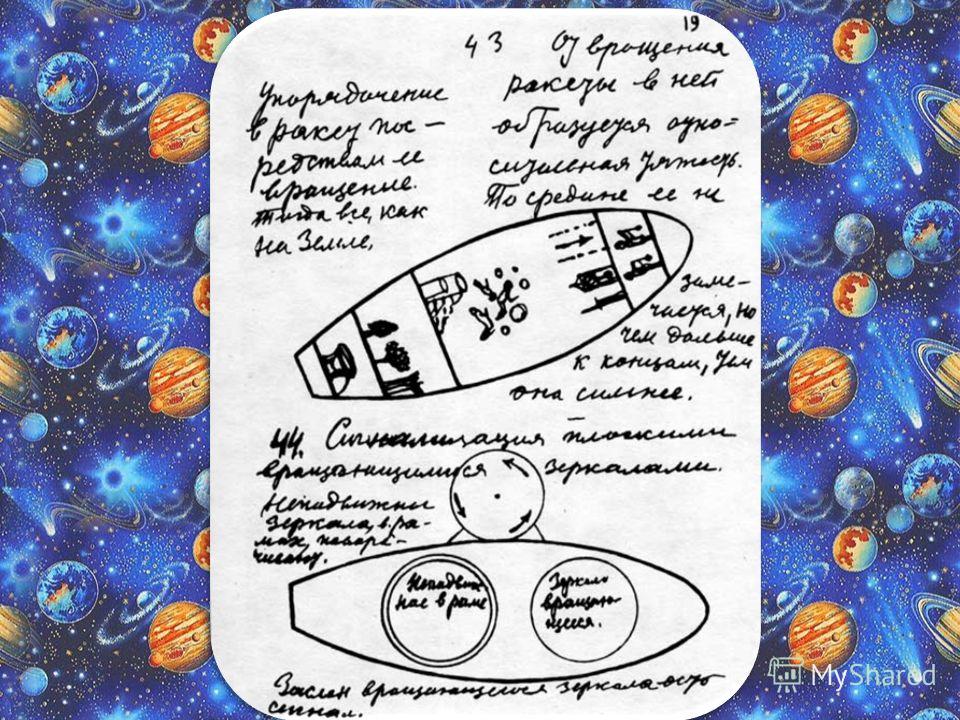 19
43 От вращения
ракеты в ней
образуется отно=
сительная тяжесть.
Посредине ее не
Упорядочение
в ракету пос-
редствам ее
вращение.
тогда все, как
на Земле,
заме-
чается, но
чем дальше
к концам, тем
она сильнее.
44. Сигнализация плоскими
вращающимися зеркалами.
Неподвижны
зеркала, в ра-
мах,
Неподвиж
ное в раме
Зеркало
вращаю-
щееся.
Заслон вращающегося зеркала есть
сигнал.
MyShared